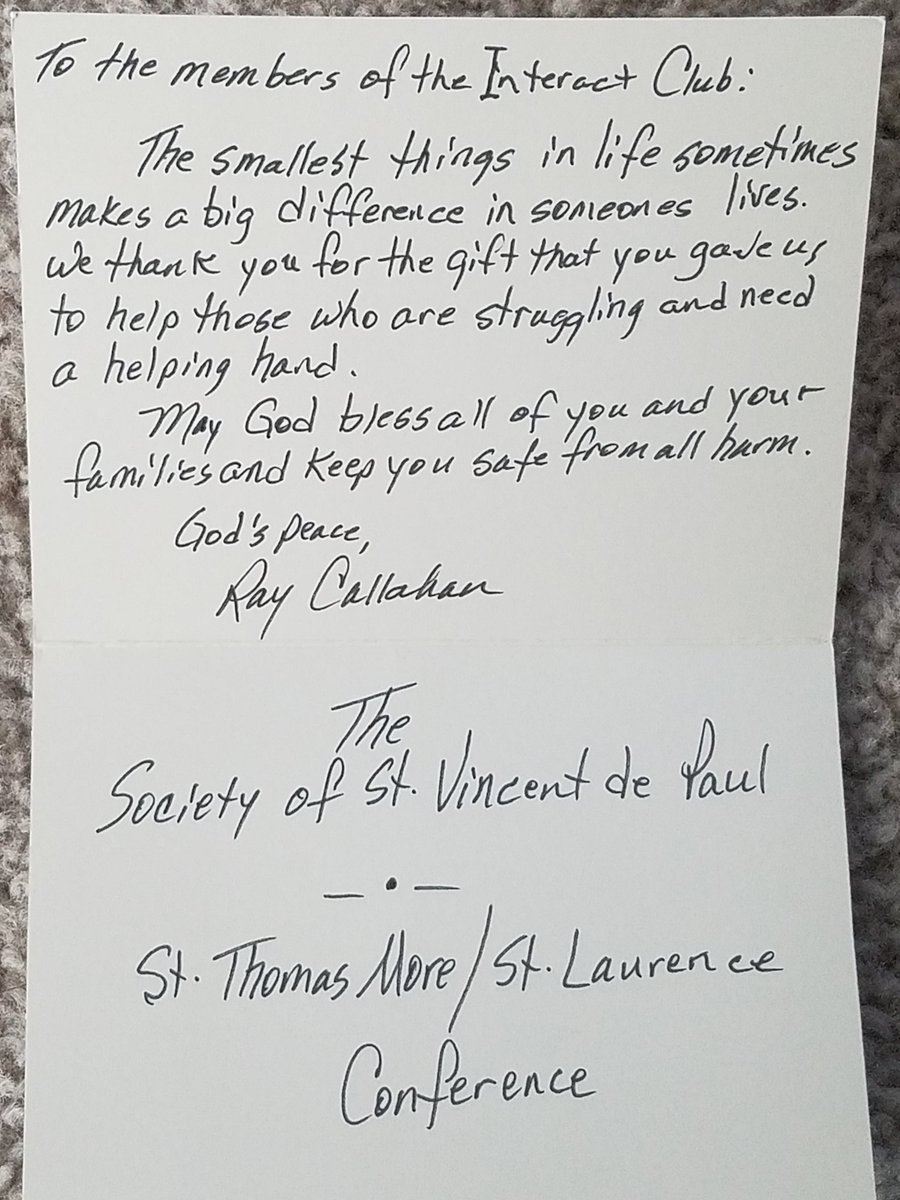 To the members of the Interact Club:
The smallest things in life sometimes
makes a big difference in someones lives.
We thank you for the gift that you gave us
to help those who are struggling and need
a helping hand.
May God bless all of you and your
families and keep you safe from all harm.
God's peace,
Ray Callahan
The
Society of St. Vincent de Paul
— • —
St. Thomas More/St. Laurence
Conference